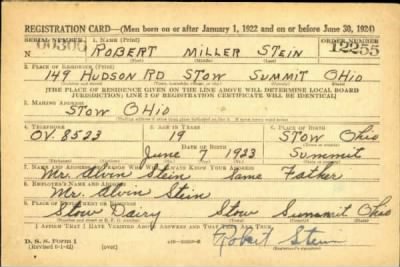 REGISTRATION CARD—(Men born on or after January 1, 1922 and on or before June 30, 1924)
SERIAL NUMBER 1. NAME (Print) ORDER NUMBER
N ROBERT MILLER STEIN 12255
(First) (Middle) (Last)
2. PLACE OF RESIDENCE (Print)
149 HUDSON RD STOW SUMMIT OHIO
[THE PLACE OF RESIDENCE GIVEN ON THE LINE ABOVE WILL DETERMINE LOCAL BOARD
JURISDICTION; LINE 2 OF REGISTRATION CERTIFICATE WILL BE IDENTICAL]
3. MAILING ADDRESS
STOW OHIO
4. TELEPHONE 5. AGE IN YEARS 6. PLACE OF BIRTH
OV. 8523 19 STOW Ohio
June 7 1923 Summit
7. NAME AND ADDRESS OF PERSON WHO WILL ALWAYS KNOW YOUR ADDRESS
Mr. Alvin Stein same Father
8. EMPLOYER'S NAME AND ADDRESS
Mr. Alvin Stein
9. PLACE OF EMPLOYMENT OR BUSINESS
Stow Dairy Stow Summit Ohio
I AFFIRM THAT I HAVE VERIFIED ABOVE ANSWERS AND THAT THEY ARE TRUE.
D. S. S. Form 1
(Revised 6-1-42) (over)
Robert Stein